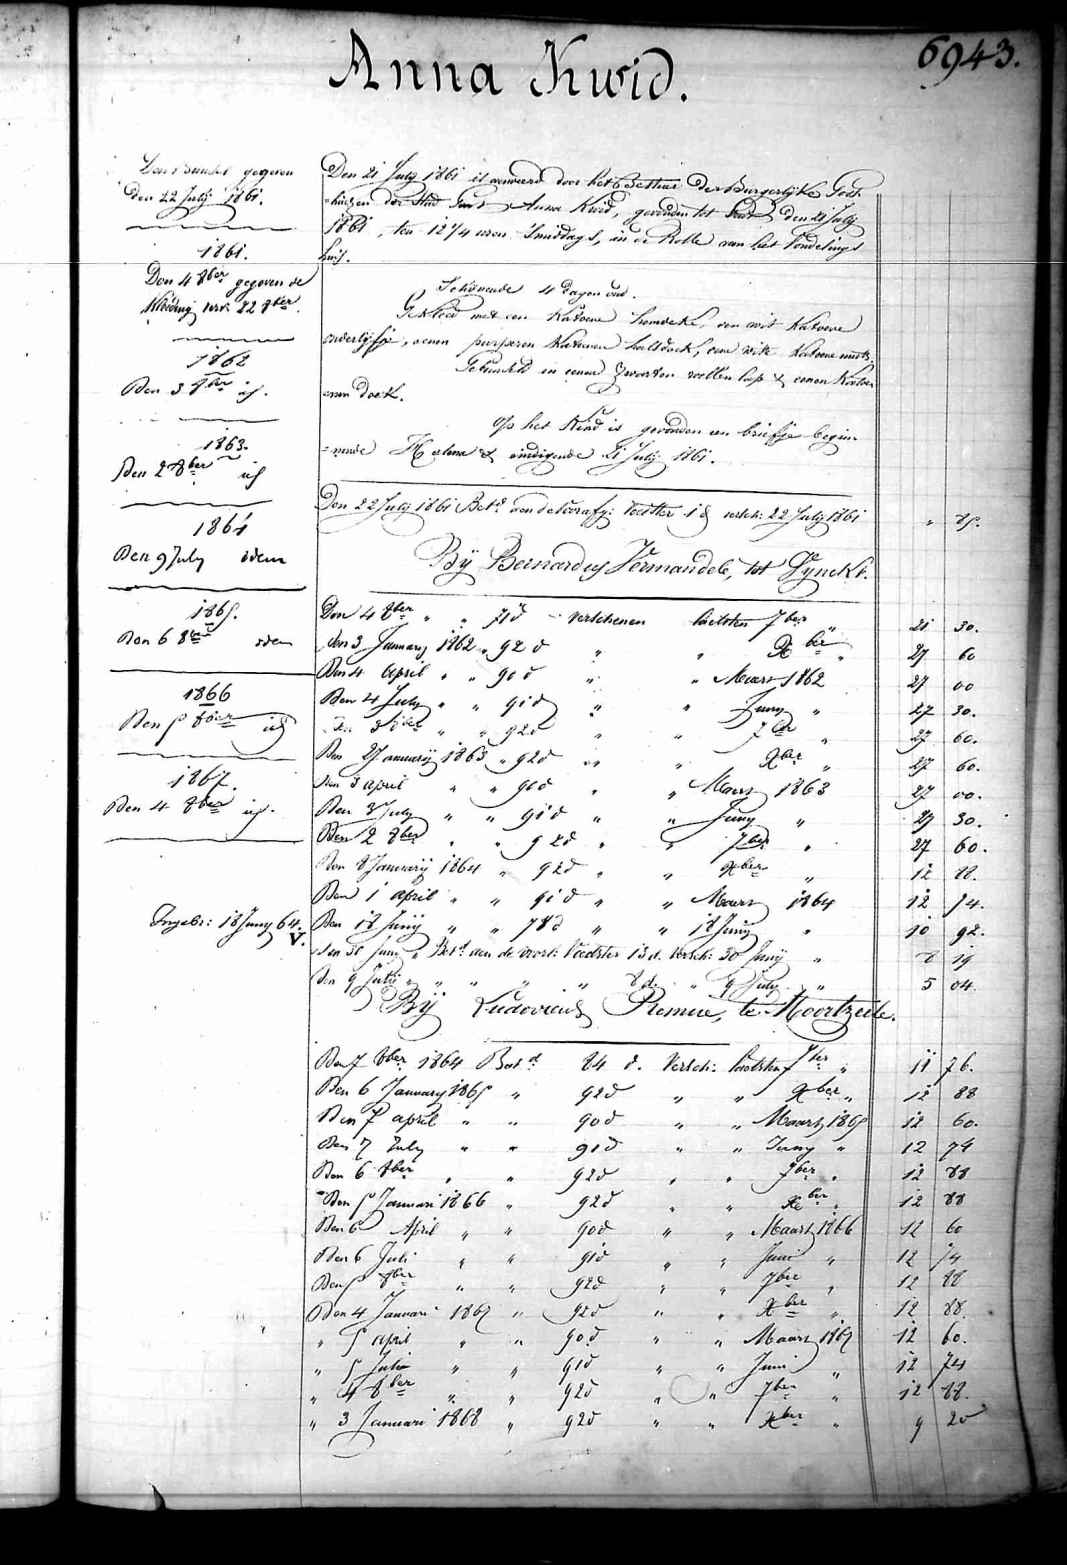 6943.
Anna Kwid.
Den Bundel gegeven
den 22 July 1861.
1861.
Den 4 8ber gegeven de
Kleeding versch: 22 8ber.
1862
Den 3 8ber id.
1863.
Den 2 8ber id
1864
Den 9 July idem
1865.
Den 6 8ber idem
1866
Den 5 8ber id
1867.
Den 4 8ber id.
Ingebr: 18 Juny 64.
V.
Den 21 July 1861 is aenveerd door het Bestuur der Burgerlyke Godts-
-huizen der Stad Gent Anna Kwid, gevonden tot Gent den 21 July
1861, ten 12 1/4 uren 's middags, in de Rolle van het Vondelings
huis.
Schynende 4 dagen oud.
Gekleed met een katoene hemdeke, een wit katoene
onderlyfje, eenen purperen katoenen halsdoek, eene witte katoene muts,
Gebundeld in eenen zwarten wollen lap & eenen katoe-
enen doek.
Op het Kind is gevonden een briefje begin-
-nende & eindigende 21 July 1861.
Den 22 July 1861 Betd. aen de voorafg: Voedster 1 d versch: 22 July 1861 "
By Bernardus Vermandele, tot Vynckt.
Den 4 8ber " " 71 d verschenen laetsten 7ber " 21 30.
Den 3 January 1862 " 92 d " " Xber " 27 60
Den 4 April " " 90 d " " Maert 1862 27 00
Den 4 July " " 91 d " " Juny " 27 30.
Den 3 8ber " " 92 d " " 7ber " 27 60.
Den 2 January 1863 " 92 d " " Xber " 27 60.
Den 3 april " " 90 d " " Maers 1863 27 00.
Den 3 July " " 91 d " " Juny " 27 30.
Den 2 8ber " " 92 d " " 7ber " 27 60.
Den 8 January 1864 " 92 d " " Xber " 12 88.
Den 1 april " " 91 d " " Maers 1864 12 74.
Den 18 Juny " " 78 d " " 18 Juny " 10 92.
Den 30 Juny " Betd. aen de voorl: Voedster 13 d. Versch: 30 Juny " 8 19
Den 9 July " " " " " 8 d. " 9 July " 5 04.
By Ludovicus te Moortzeele.
Den 7 8ber 1864 Betd. 84 d. Versch: laetsten 7ber " 11 76.
Den 6 January 1865 " 92 d " " Xber " 12 88
Den 7 april " " 90 d " " Maart 1865 12 60.
Den 7 July " " 91 d " " Juny " 12 74
Den 6 8ber " " 92 d " " 7ber " 12 88
Den 5 Januari 1866 " 92 d " " Xber " 12 88
Den 6 April " " 90 d " " Maart 1866 12 60
Den 6 Juli " " 91 d " " Juni " 12 74
Den 5 8ber " " 92 d " " 7ber " 12 88
Den 4 Januari 1867 " 92 d " " Xber " 12 88
" 5 april " " 90 d " " Maart 1867 12 60.
" 5 Juli " " 91 d " " Juni " 12 74
" 4 8ber " " 92 d " " 7ber " 12 88.
" 3 Januari 1868 " 92 d " " Xber " 9 20